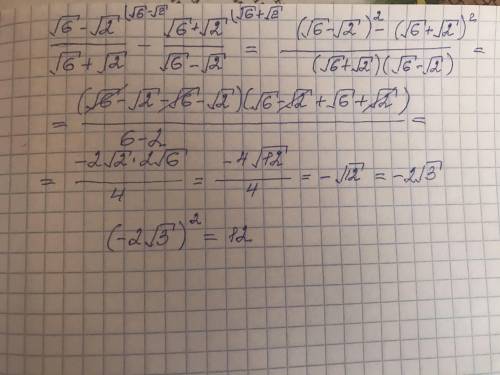 (√6-√2)/(√6+√2) |√6-√2 - (√6+√2)/(√6-√2) |√6+√2 = ((√6-√2)² - (√6+√2)²)/((√6+√2)(√6-√2)) =
= ((√6-√2-√6-√2)(√6-√2+√6+√2))/(6-2) =
= (-2√2·2√6)/4 = (-4√12)/4 = -√12 = -2√3
(-2√3)² = 12